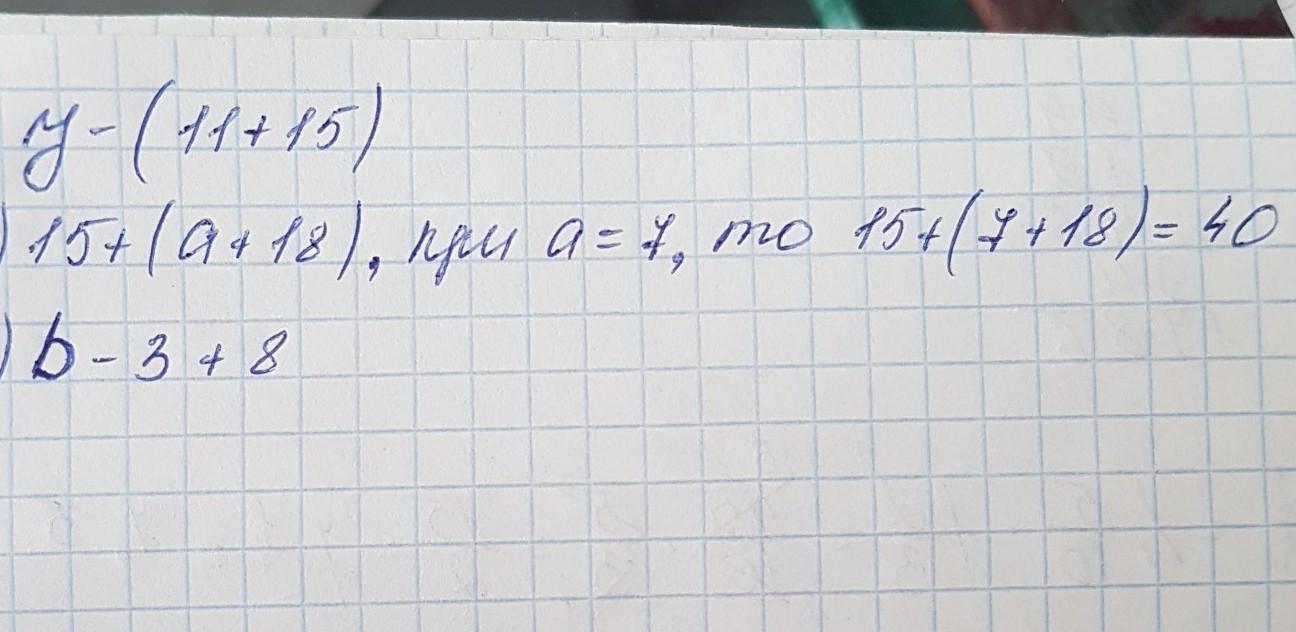 y - (11 + 15)
) 15 + (a + 18), при a = 7, то 15 + (7 + 18) = 40
) b - 3 + 8